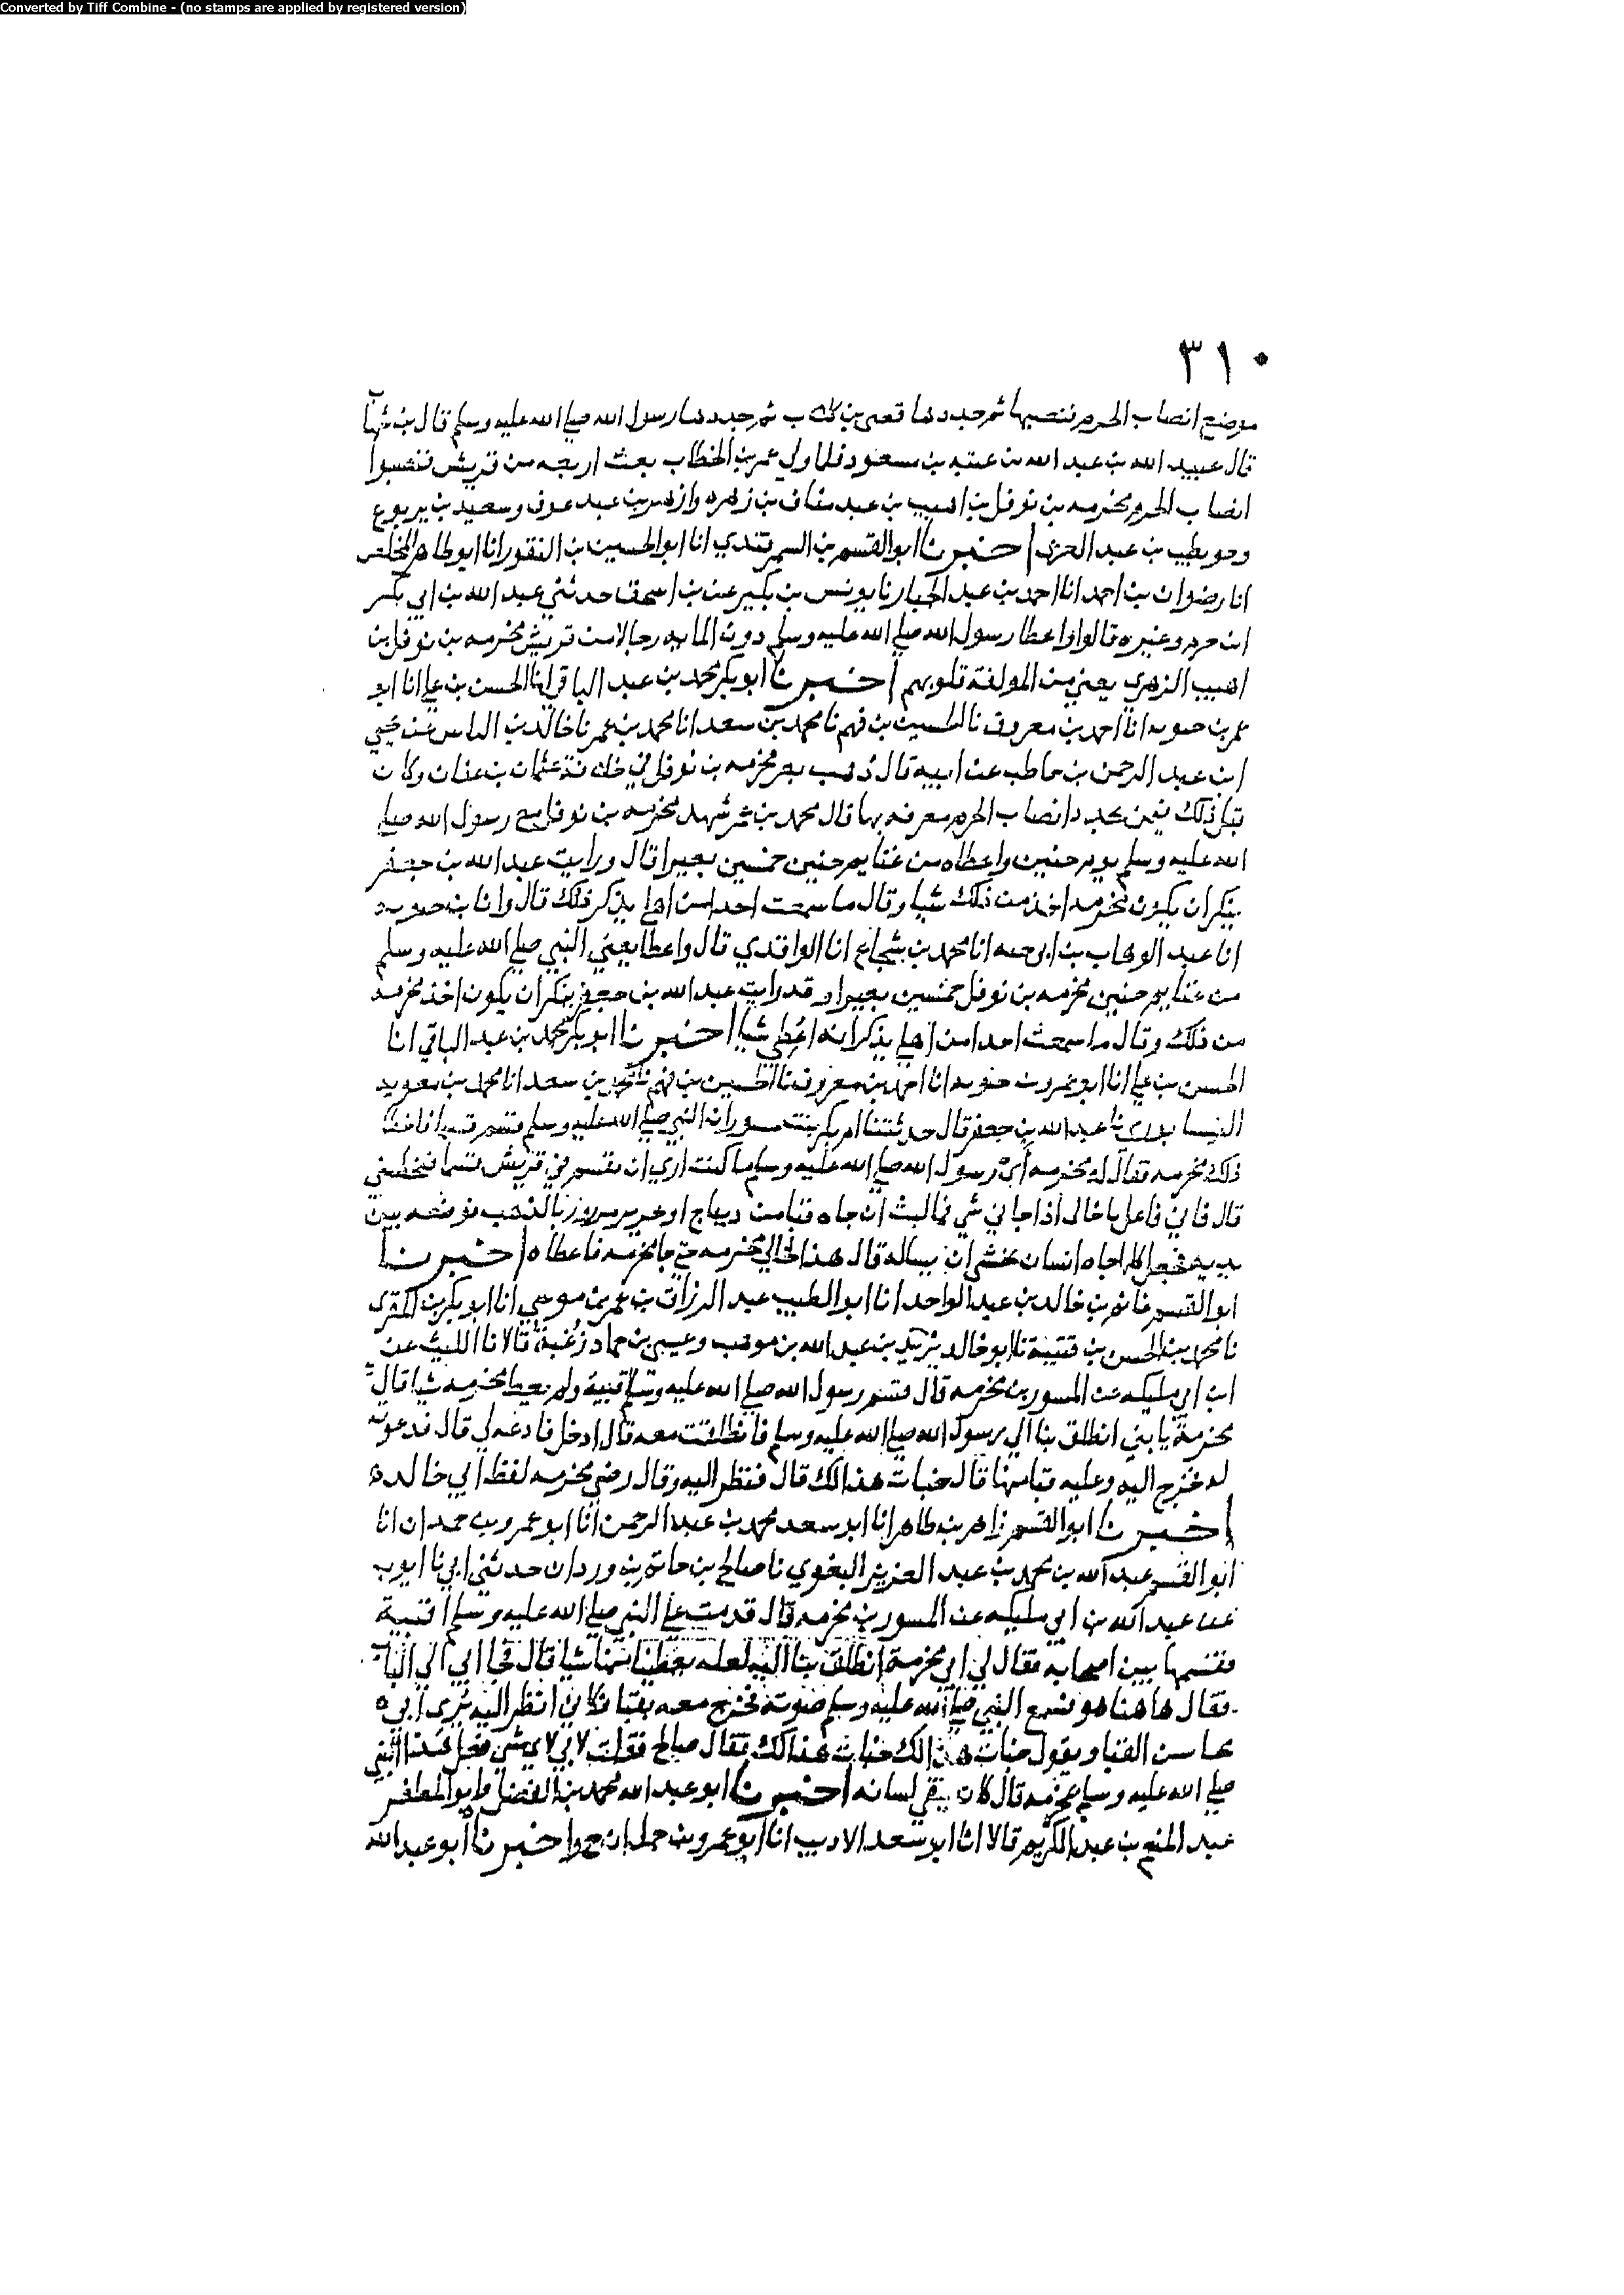 Converted by Tiff Combine - (no stamps are applied by registered version)
٣١٠
موضع انصاب الحرم فنصبها ثم جددها قصي بن كلاب ثم جددها رسول الله صلي الله عليه وسلم قال بن شهاب
قال عبيد الله بن عبد الله بن عتبه بن مسعود فلما ولي عمر بن الخطاب بعث اربعه من قريش فنصبوا
انصاب الحرم مخرمه بن نوفل بن اهيب بن عبد مناف بن زهره وازهر بن عبد عوف وسعيد بن يربوع
وحويطب بن عبد العزي اخبرنا ابو القسم بن السمرقندي انا ابو الحسين بن النقور انا ابو طاهر المخلص
انا رضوان بن احمد انا احمد بن عبد الجبار نا يونس بن بكير عن بن اسحق حدثني عبد الله بن ابي بكر
ابن حزم وغيره قالوا اعطا رسول الله صلي الله عليه وسلم دون المايه رجالا من قريش مخرمه بن نوفل بن
اهيب الزهري يعني من المولفة قلوبهم اخبرنا ابو بكر محمد بن عبد الباقي انا الحسن بن علي انا ابو
عمر بن حيويه انا احمد بن معروف نا الحسين بن فهم نا محمد بن سعد انا محمد بن عمر نا خالد بن الياس عن يحيي
ابن عبد الرحمن بن حاطب عن ابيه قال ذهب بصر مخرمه بن نوفل في خلافة عثمان بن عفان وكان
قبل ذلك فيمن يجدد انصاب الحرم معرفه بها قال محمد بن عمر شهد مخرمه بن نوفل مع رسول الله صلي
الله عليه وسلم يوم حنين واعطاه من غنايم حنين خمسين بعيرا قال ورايت عبد الله بن جعفر
ينكر ان يكون مخرمه اخذ من ذلك شيا وقال ما سمعت احدا من اهلي يذكر ذلك قال وانا بن حيويه
انا عبد الوهاب بن ابي حيه انا محمد بن شجاع انا الواقدي قال واعطا يعني النبي صلي الله عليه وسلم
من غنايم حنين مخرمه بن نوفل خمسين بعيرا وقد رايت عبد الله بن جعفر ينكر ان يكون اخذ مخرمه
من ذلك وقال ما سمعت احدا من اهلي يذكر انه اعطي شيا اخبرنا ابو بكر محمد بن عبد الباقي انا
الحسن بن علي انا ابو عمر بن حيويه انا احمد بن معروف نا الحسين بن فهم نا محمد بن سعد انا محمد بن معويه
النيسابوري نا عبد الله بن جعفر قال حدثتنا ام بكر بنت مسور ان النبي صلي الله عليه وسلم قسم
ذلك مخرمه فقال له مخرمه اي رسول الله صلي الله عليه وسلم ما كنت اري ان تقسم في قريش قسما فتخطيني
قال فاني فاعل يا خالي اذا جاني شي فما لبث ان جاه قبا من ديباج او حرير مزرر بالذهب فوضعه بين
يديه فجعل كلما جاه انسان يخشي ان يساله قال هذا لخالي مخرمه حتي جا مخرمه فاعطاه اخبرنا
ابو القسم غانم بن خالد بن عبد الواحد انا ابو الطيب عبد الرزاق بن عمر بن موسي انا ابو بكر بن المقري
نا محمد بن الحسن بن قتيبة نا ابو خالد يزيد بن عبد الله بن موهب وعيسي بن حماد زغبة قالا نا الليث عن
ابن ابي مليكه عن المسور بن مخرمه قال قسم رسول الله صلي الله عليه وسلم اقبية ولم يعط مخرمه شيا قال
مخرمة يا بني انطلق بنا الي رسول الله صلي الله عليه وسلم فانطلقت معه قال ادخل فادعه لي قال فدعوته
له فخرج اليه وعليه قبا منها قال خبات هذا لك قال فنظر اليه وقال رضي مخرمه لفظ ابي خالد ه
اخبرنا ابو القسم زاهر بن طاهر انا ابو سعد محمد بن عبد الرحمن انا ابو عمرو بن حمدان انا
ابو القسم عبد الله بن محمد بن عبد العزيز البغوي نا صالح بن حاتم بن وردان حدثني ابي نا ايوب
عن عبد الله بن ابي مليكه عن المسور بن مخرمه قال قدمت علي النبي صلي الله عليه وسلم اقبية
فقسمها بين اصحابه فقال لي ابي مخرمة انطلق بنا اليه لعله يعطينا منها شيا قال فجا ابي الي الباب
فقال هاهنا هو فسمع النبي صلي الله عليه وسلم صوته فخرج معه بقبا فكاني انظر اليه يري ابي
محاسن القبا ويقول خبات هذا لك خبات هذا لك فقال صالح فقلت لابي لاي شي فعل هذا النبي
صلي الله عليه وسلم بمخرمه قال كان يتقي لسانه اخبرنا ابو عبد الله محمد بن الفضل وابو المظفر
عبد المنعم بن عبد الكريم قالا انا ابو سعد الاديب انا ابو عمرو بن حمدان ح واخبرنا ابو عبد الله